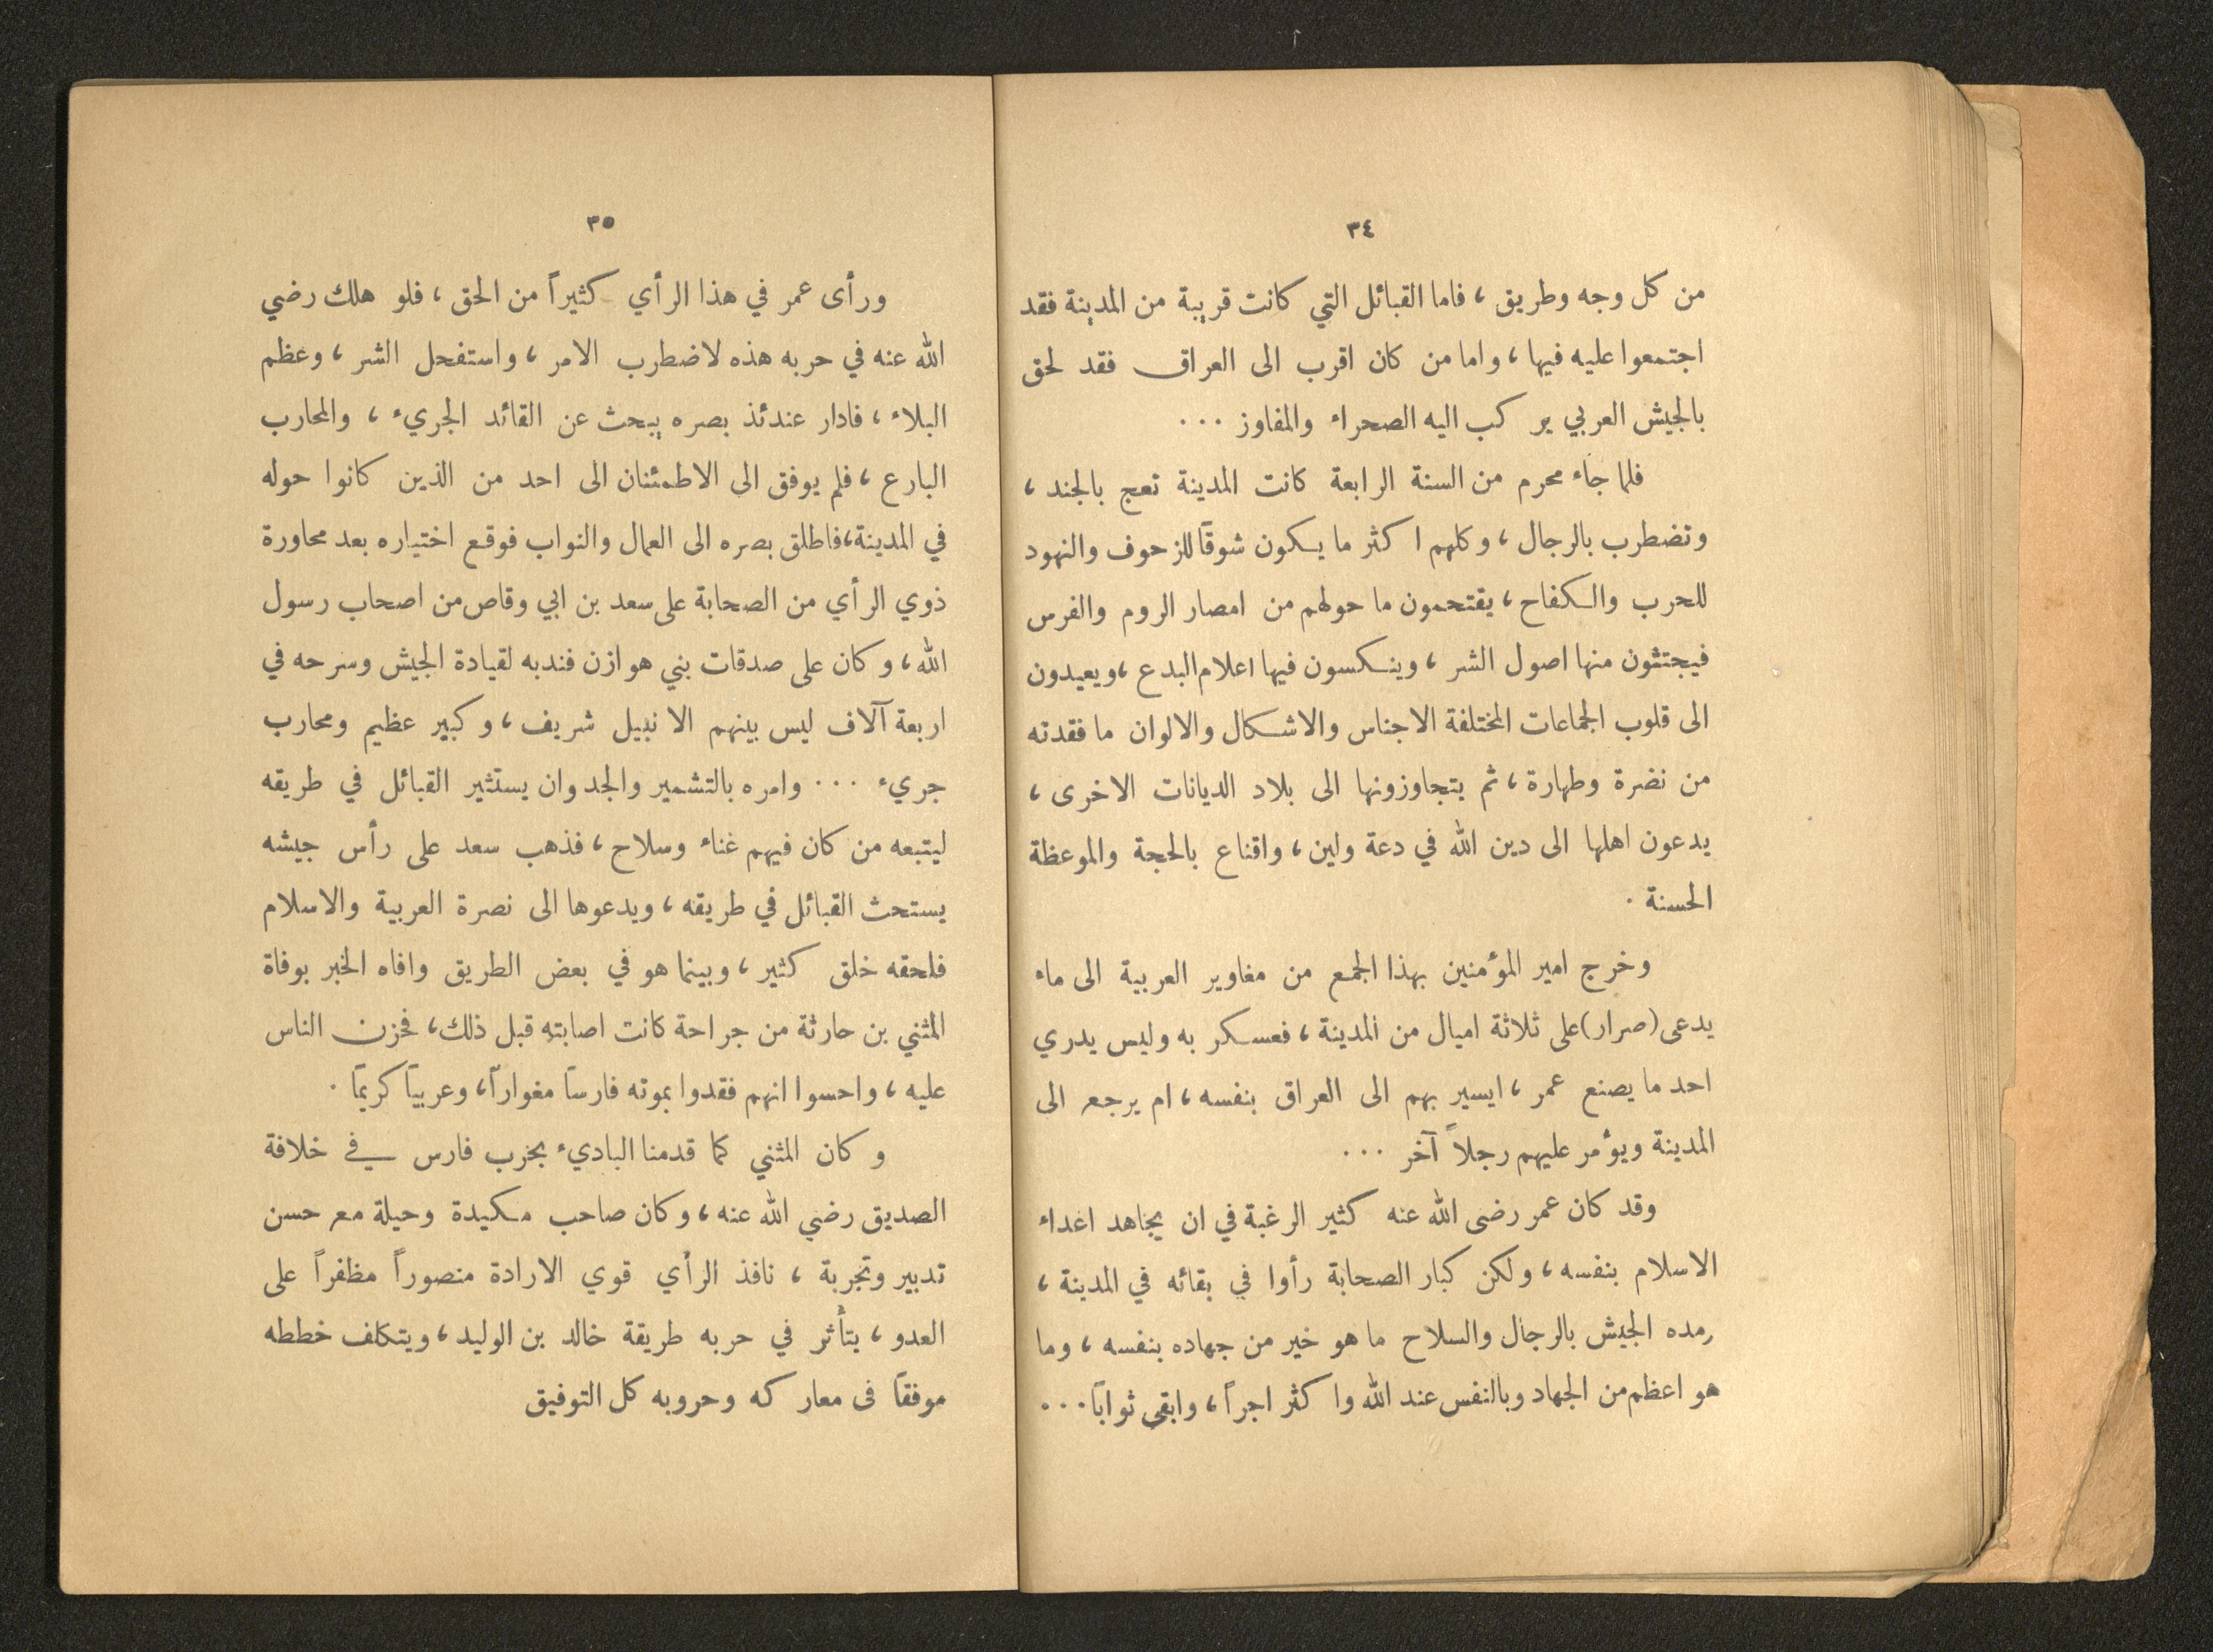 ٣٤
من كل وجه وطريق ، فاما القبائل التي كانت قريبة من المدينة فقد
اجتمعوا عليه فيها ، واما من كان اقرب الى العراق فقد لحق
بالجيش العربي يركب اليه الصحراء والمفاوز ...
فلما جاء محرم من السنة الرابعة كانت المدينة تعج بالجند ،
وتضطرب بالرجال ، وكلهم اكثر ما يكون شوقاً للزحوف والنهود
للحرب والكفاح ، يقتحمون ما حولهم من امصار الروم والفرس
فيجتثون منها اصول الشر ، وينكسون فيها اعلام البدع ، ويعيدون
الى قلوب الجماعات المختلفة الاجناس والاشكال والالوان ما فقدته
من نضرة وطهارة ، ثم يتجاوزونها الى بلاد الديانات الاخرى ،
يدعون اهلها الى دين الله في دعة ولين ، واقناع بالحجة والموعظة
الحسنة .
وخرج امير المؤمنين بهذا الجمع من مغاوير العربية الى ماء
يدعى (صرار) على ثلاثة اميال من المدينة ، فعسكر به وليس يدري
احد ما يصنع عمر ، ايسير بهم الى العراق بنفسه ، ام يرجع الى
المدينة ويؤمر عليهم رجلاً آخر ...
وقد كان عمر رضى الله عنه كثير الرغبة في ان يجاهد اعداء
الاسلام بنفسه ، ولكن كبار الصحابة رأوا في بقائه في المدينة ،
رمده الجيش بالرجال والسلاح ما هو خير من جهاده بنفسه ، وما
هو اعظم من الجهاد وبالنفس عند الله واكثر اجراً ، وابقى ثواباً ...
٣٥
ورأى عمر في هذا الرأي كثيراً من الحق ، فلو هلك رضي
الله عنه في حربه هذه لاضطرب الامر ، واستفحل الشر ، وعظم
البلاء ، فادار عندئذ بصره يبحث عن القائد الجريء ، والمحارب
البارع ، فلم يوفق الى الاطمئنان الى احد من الذين كانوا حوله
في المدينة ، فاطلق بصره الى العمال والنواب فوقع اختياره بعد محاورة
ذوي الرأي من الصحابة على سعد بن ابي وقاص من اصحاب رسول
الله ، وكان على صدقات بني هوازن فندبه لقيادة الجيش وسرحه في
اربعة آلاف ليس بينهم الا نبيل شريف ، وكبير عظيم ومحارب
جريء ... وامره بالتشمير والجد وان يستثير القبائل في طريقه
ليتبعه من كان فيهم غناء وسلاح ، فذهب سعد على رأس جيشه
يستحث القبائل في طريقه ، ويدعوها الى نصرة العربية والاسلام
فلحقه خلق كثير ، وبينما هو في بعض الطريق وافاه الخبر بوفاة
المثني بن حارثة من جراحة كانت اصابته قبل ذلك ، فحزن الناس
عليه ، واحسوا انهم فقدوا بموته فارساً مغواراً ، وعربياً كريماً .
وكان المثني كما قدمنا الباديء بحرب فارس في خلافة
الصديق رضي الله عنه ، وكان صاحب مكيدة وحيلة مع حسن
تدبير وتجربة ، نافذ الرأي قوي الارادة منصوراً مظفراً على
العدو ، يتأثر في حربه طريقة خالد بن الوليد ، ويتكلف خططه
موفقاً فى معاركه وحروبه كل التوفيق